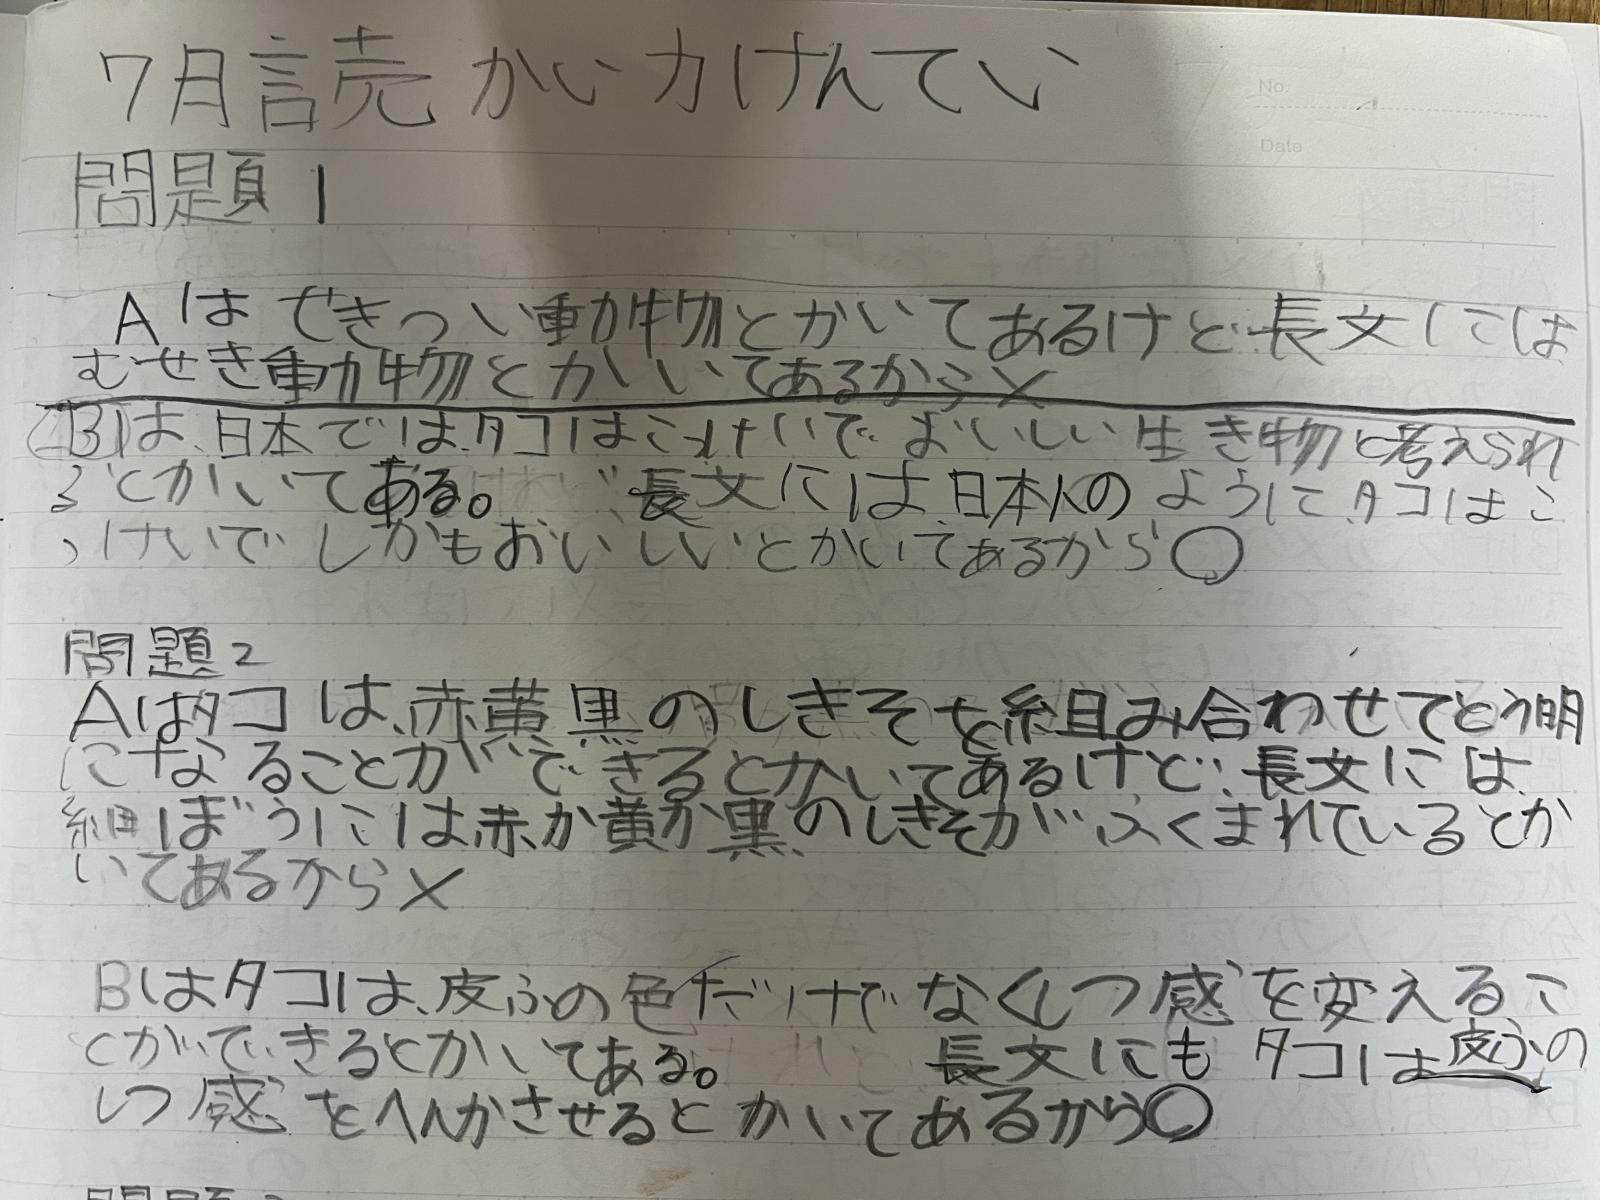 7月読かい力けんてい
No.
Date
問題1
Aはせきつい動物とかいてあるけど長文には
むせき動物とかいてあるから×
Bは、日本では、タコはこっけいでおいしい生き物と考えられ
るとかいてある。長文には、日本人のように、タコはこ
っけいでしかもおいしいとかいてあるから○
問題2
Aはタコは、赤黄黒のしきそを組み合わせてとう明
になることができるとかいてあるけど、長文には
細ぼうには赤か黄か黒のしきそがふくまれているとか
いてあるから×
Bはタコは、皮ふの色だけでなくしつ感を変えるこ
とができるとかいてある。長文にもタコは皮ふの
しつ感をへんかさせるとかいてあるから○